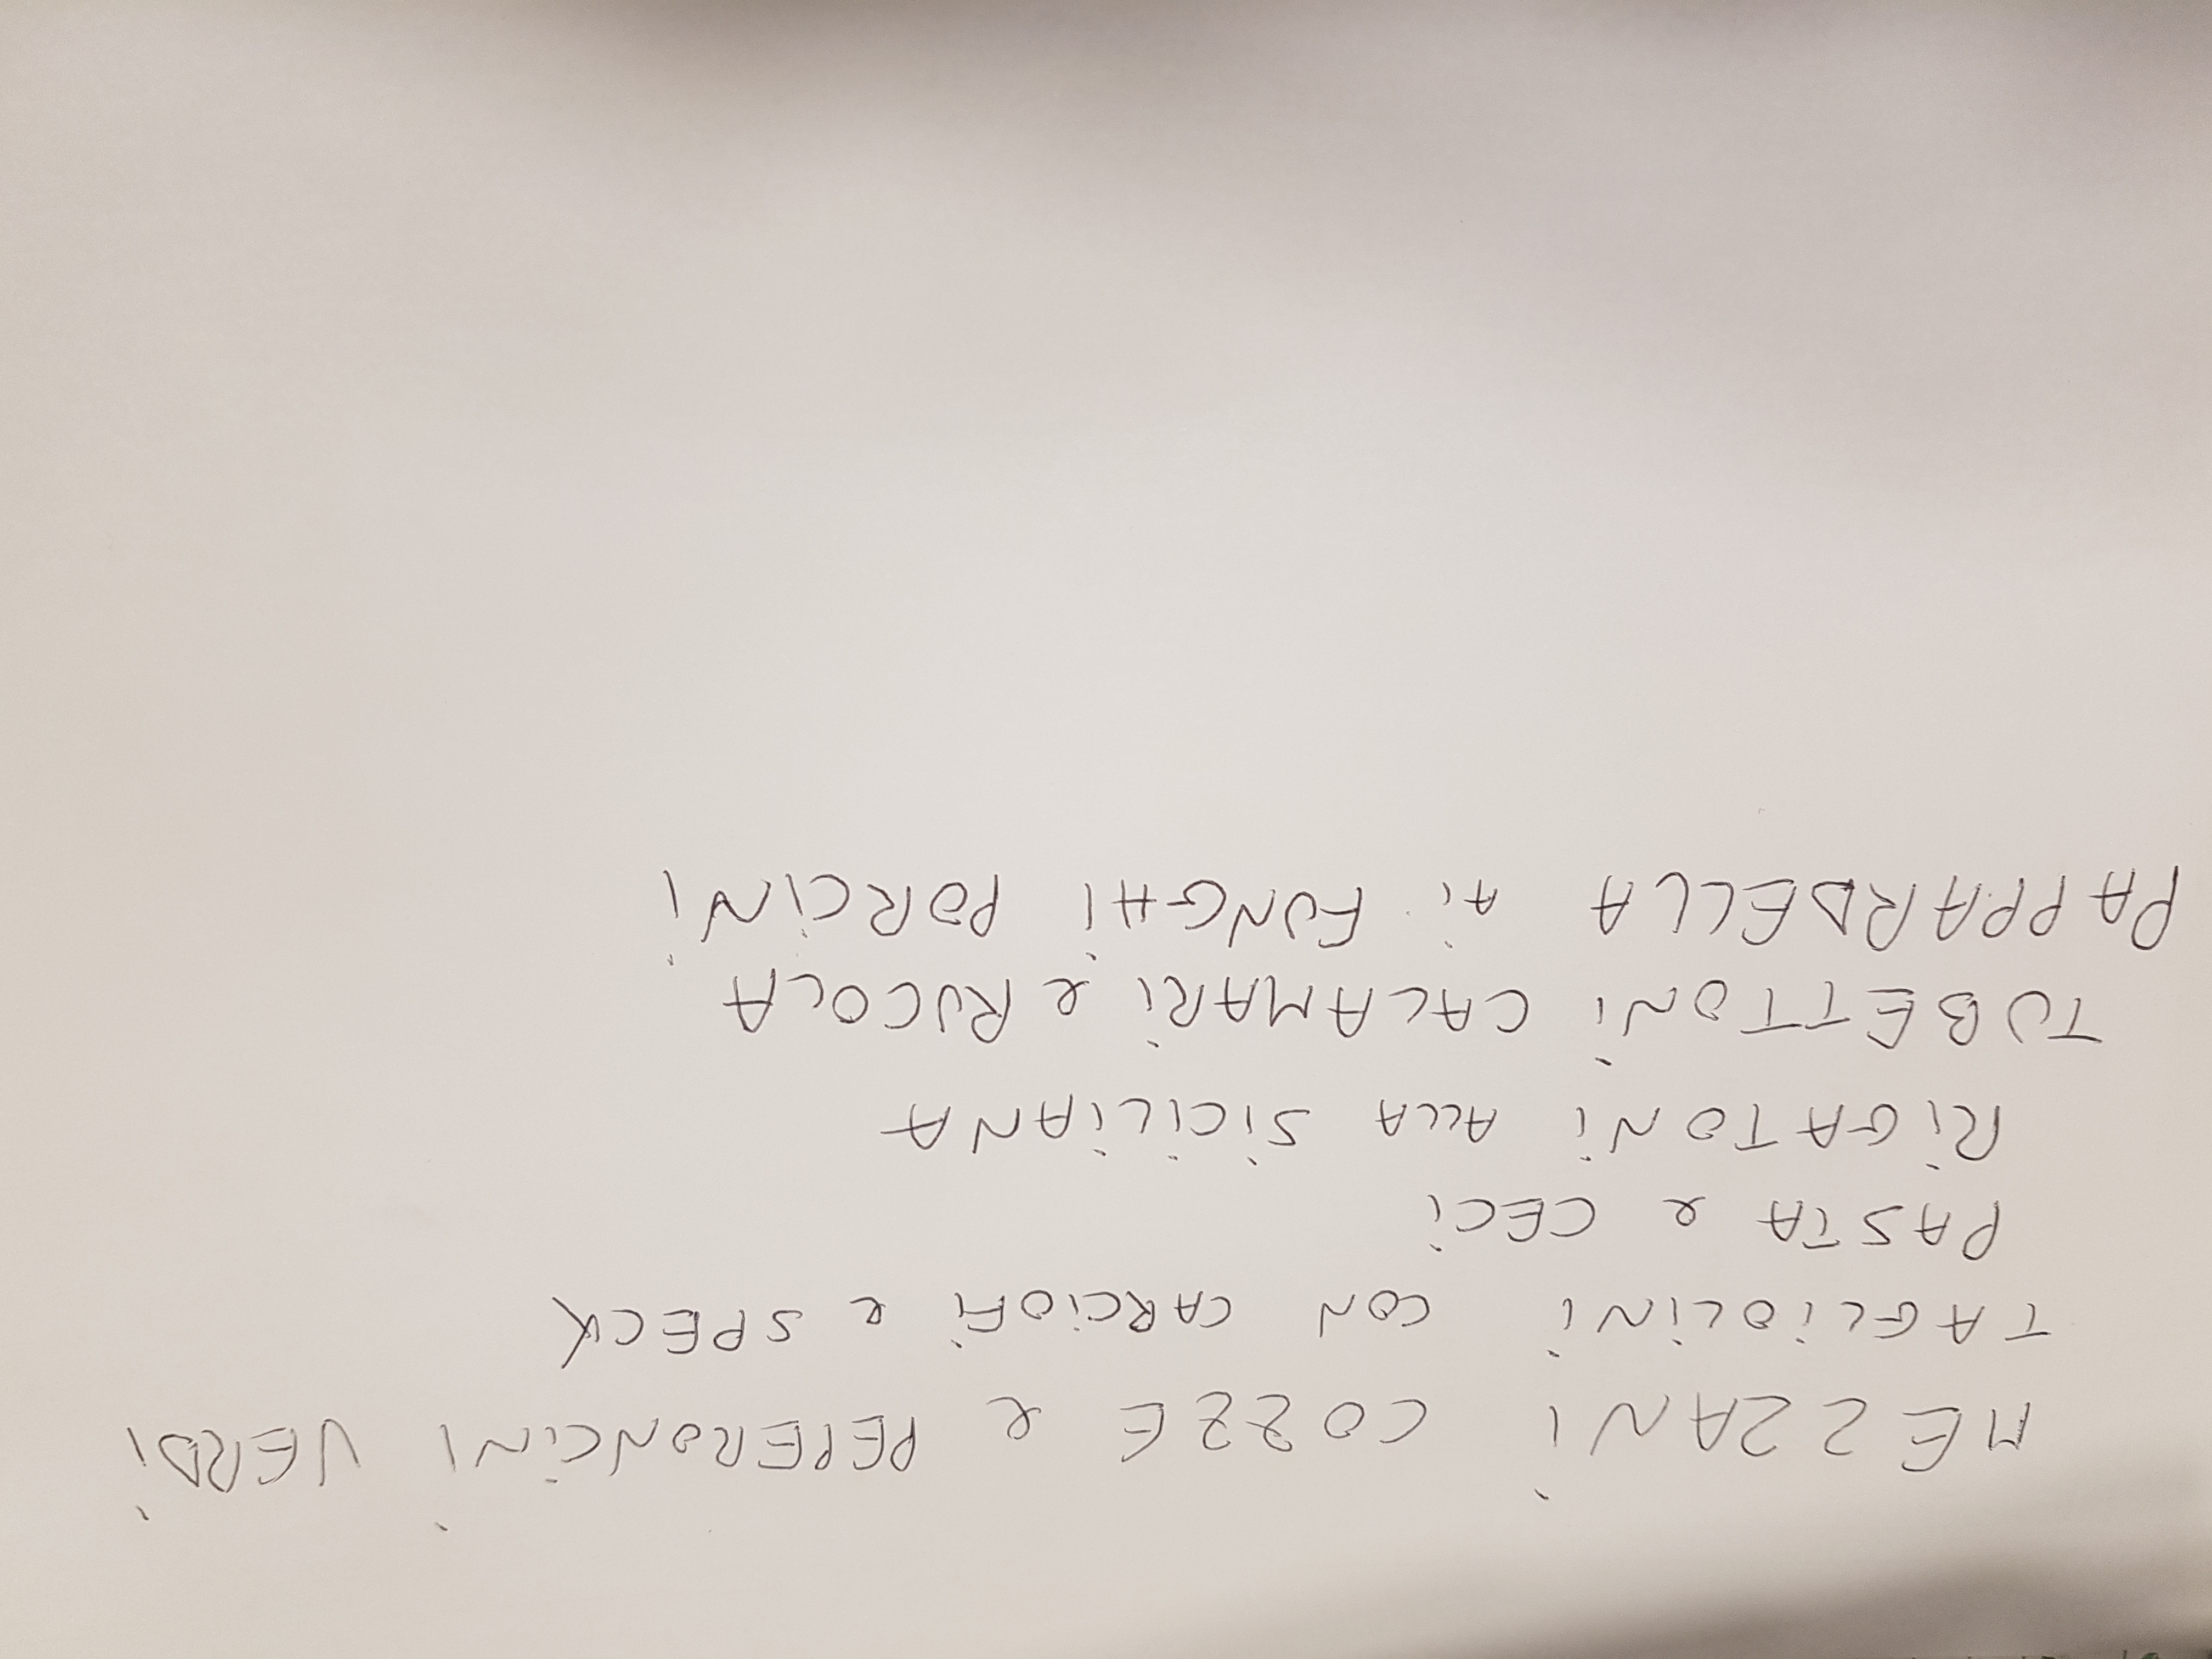 MEZZANI COZZE e PEPERONCINI VERDI
TAGLIOLINI CON CARCIOFI e SPECK
PASTA e CECI
RIGATONI ALLA SICILIANA
TUBETTONI CALAMARI e RUCOLA
PAPPARDELLA AI FUNGHI PORCINI